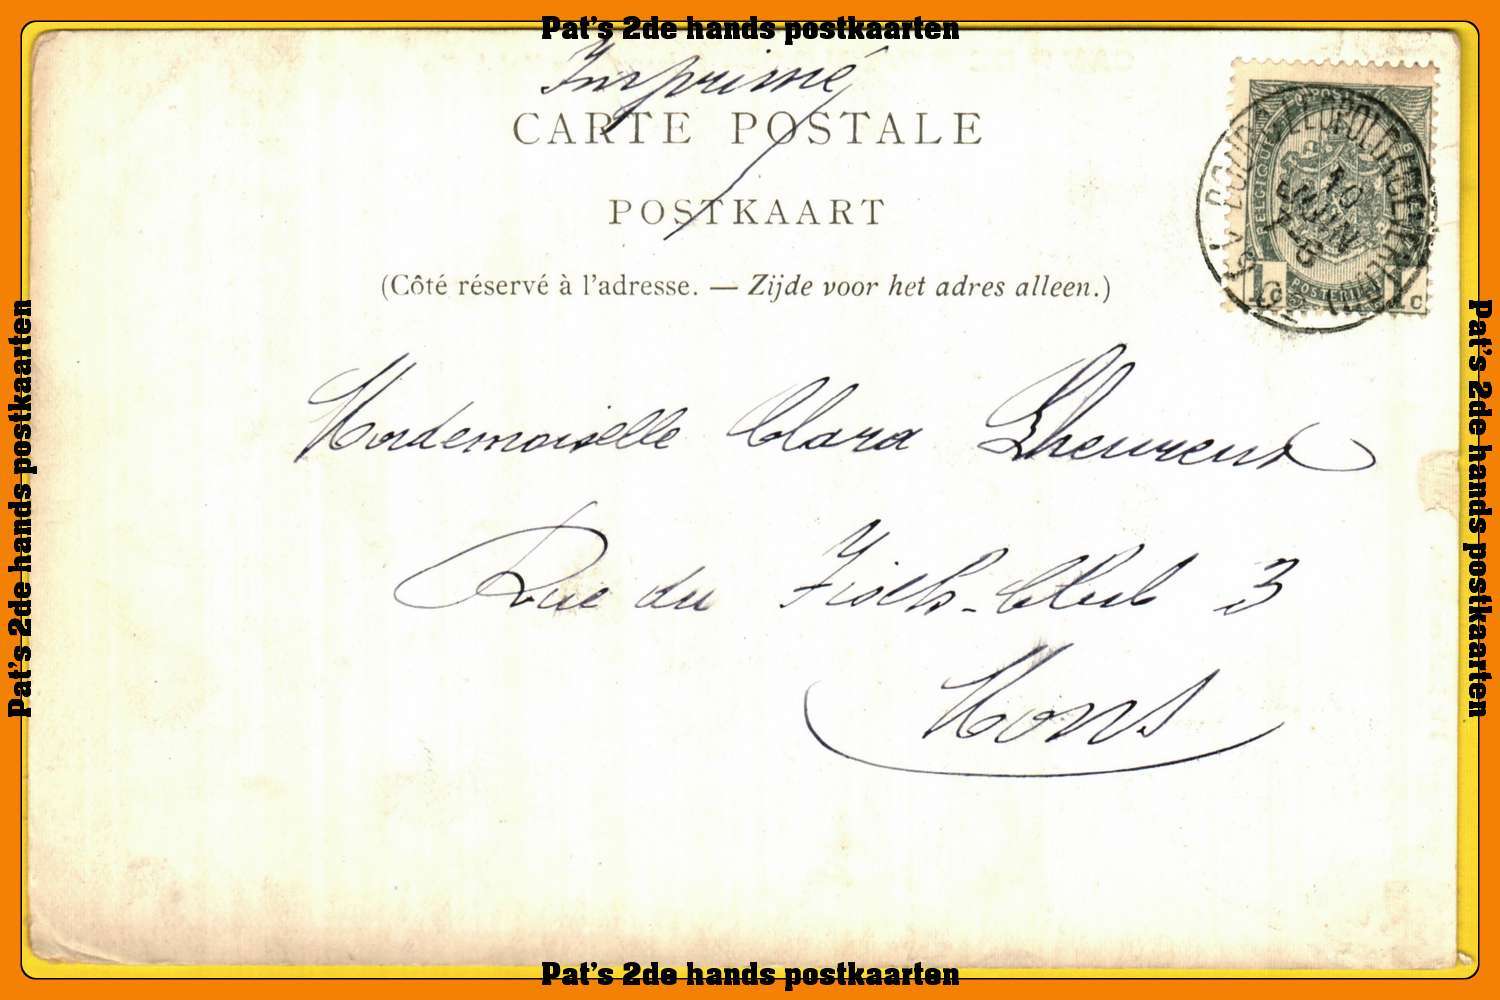 Pat's 2de hands postkaarten
Imprimé
CARTE POSTALE
POSTKAART
(Côté réservé à l'adresse. — Zijde voor het adres alleen.)
BELGIQUE
10
JUIN
7-8
1c
1c
Mademoiselle Clara Lheureux
Rue du 3
Mons
Pat's 2de hands postkaarten
Pat's 2de hands postkaarten
Pat's 2de hands postkaarten